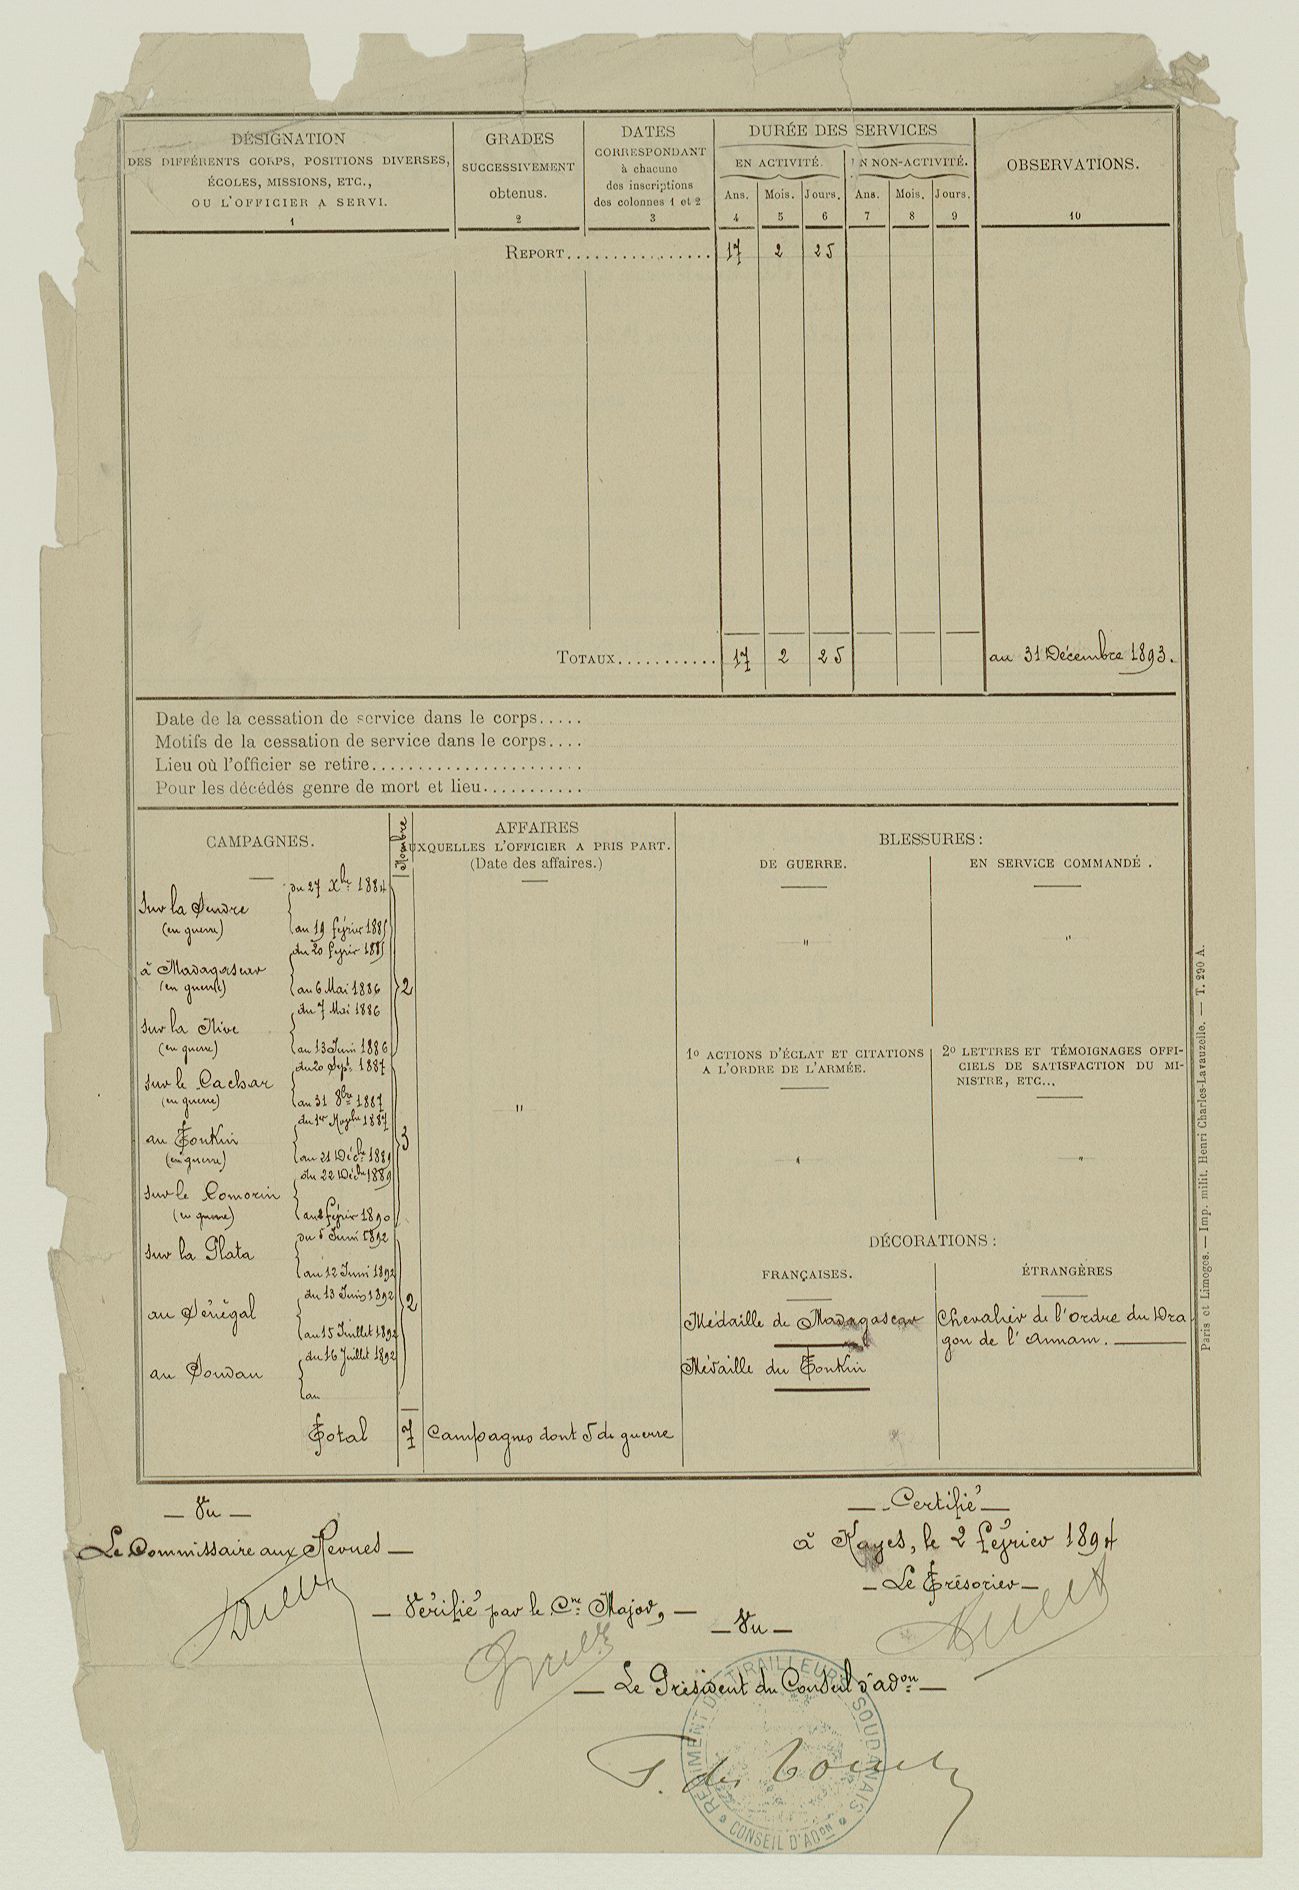 DÉSIGNATION
DES DIFFÉRENTS CORPS, POSITIONS DIVERSES,
ÉCOLES, MISSIONS, ETC.,
OU L'OFFICIER A SERVI.
1
GRADES
SUCCESSIVEMENT
obtenus.
2
DATES
CORRESPONDANT
à chacune
des inscriptions
des colonnes 1 et 2
3
DURÉE DES SERVICES
EN ACTIVITÉ.
EN NON-ACTIVITÉ.
Ans. Mois. Jours. Ans. Mois. Jours.
4 5 6 7 8 9
OBSERVATIONS.
10
REPORT................ 17 2 25
TOTAUX........... 17 2 25 au 31 Décembre 1893.
Date de la cessation de service dans le corps.....
Motifs de la cessation de service dans le corps....
Lieu où l'officier se retire.......................
Pour les décédés genre de mort et lieu...........
CAMPAGNES.
Nombre
du 27 Xbre 1884
Sur la Sendre
(en guerre)
au 19 février 1885
du 20 février 1885
à Madagascar
(en guerre)
au 6 Mai 1886
2
du 7 Mai 1886
sur la Nive
(en guerre)
au 13 Juin 1886
du 20 Sept. 1887
sur le Cachar
(en guerre)
au 31 8bre 1887
du 1er Novbre 1887
au Tonkin
(en guerre)
au 21 Décbre 1889
3
du 22 Décbre 1889
sur le Comorin
(en guerre)
au 2 février 1890
du 5 Juin 1892
sur la Plata
au 12 Juin 1892
du 13 Juin 1892
au Sénégal
au 15 Juillet 1892
2
du 16 Juillet 1892
au Soudan
au
Total 7 Campagnes dont 5 de guerre
AFFAIRES
AUXQUELLES L'OFFICIER A PRIS PART.
(Date des affaires.)
"
BLESSURES:
DE GUERRE.
"
EN SERVICE COMMANDÉ.
"
1º ACTIONS D'ÉCLAT ET CITATIONS
A L'ORDRE DE L'ARMÉE.
"
2º LETTRES ET TÉMOIGNAGES OFFI-
CIELS DE SATISFACTION DU MI-
NISTRE, ETC...
"
DÉCORATIONS:
FRANÇAISES.
Médaille de Madagascar
Médaille du Tonkin
ÉTRANGÈRES
Chevalier de l'ordre du Dra
gon de l'Annam.
Paris et Limoges. — Imp. milit. Henri Charles-Lavauzelle. — T. 290 A.
— Vu —
Le Commissaire aux Revues —
— Vérifié par le Cne Major, —
— Certifié —
à Kayes, le 2 février 1894
— Le Trésorier —
— Vu —
— Le Président du Conseil d'adon —
RÉGIMENT DE TIRAILLEURS SOUDANAIS
CONSEIL D'ADON